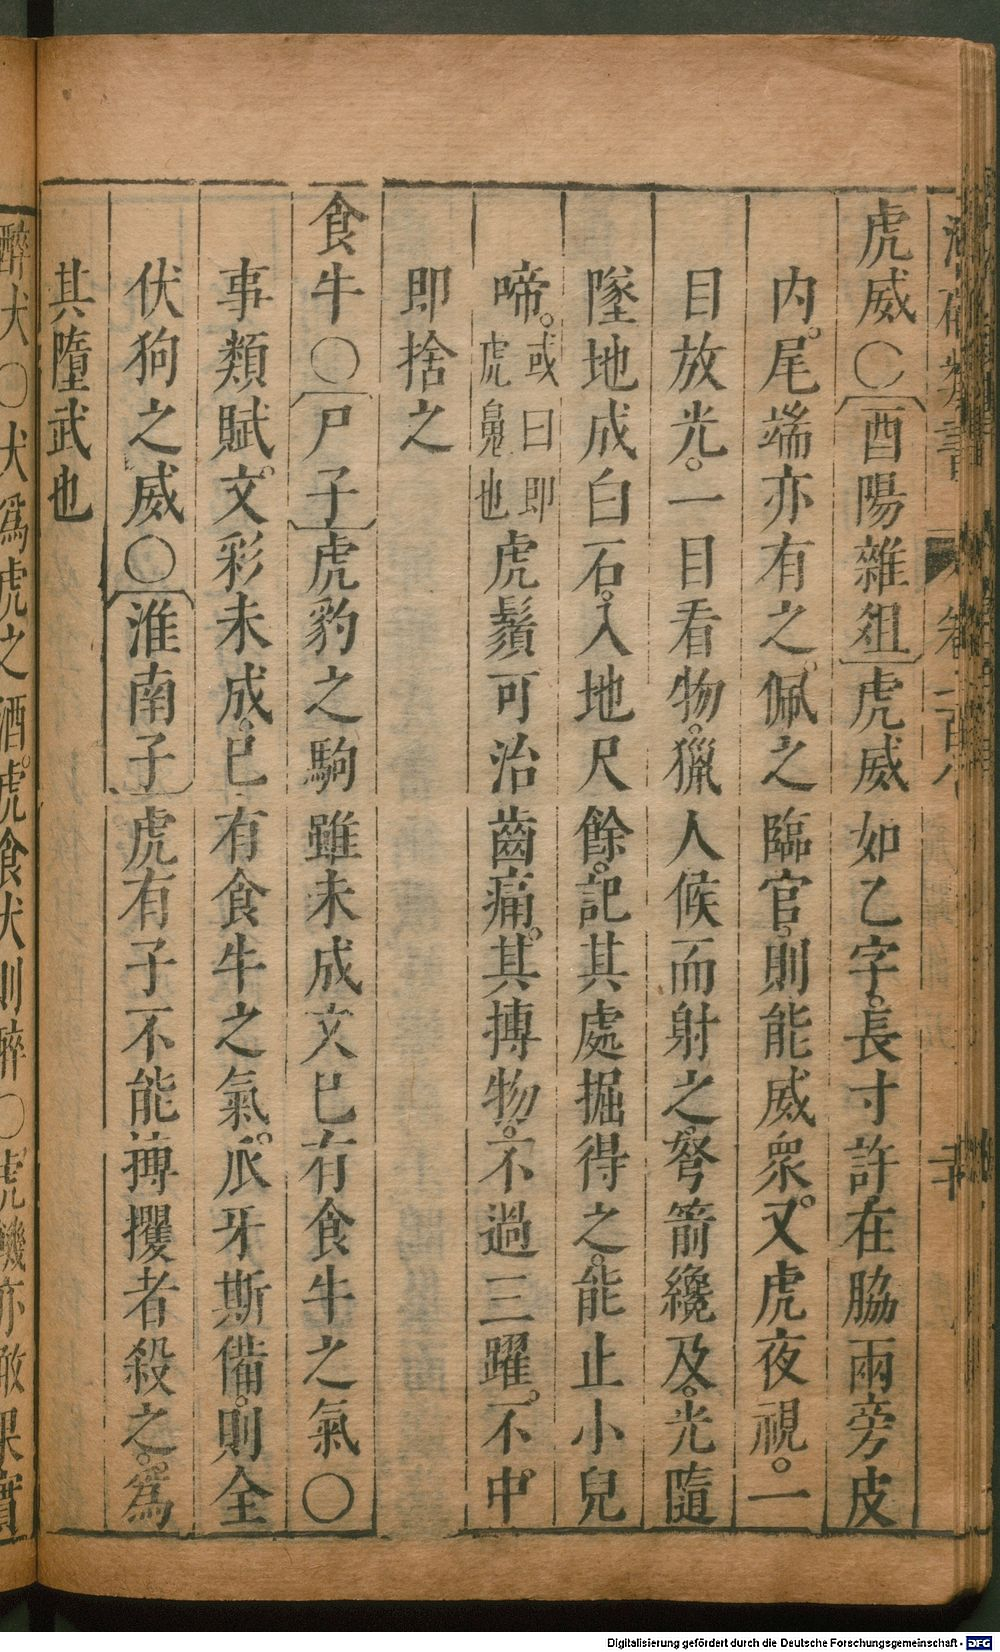 虎威○〔酉陽雜俎〕虎威如乙字。長寸許在脇兩旁皮
內。尾端亦有之。佩之臨官。則能威衆。又虎夜視。一
目放光。一目看物。獵人候而射之。弩箭纔及。光隨
墜地成白石。入地尺餘。記其處掘得之。能止小兒
啼。或曰即虎䰟也虎鬚可治齒痛。其搏物。不過三躍。不中
即捨之
食牛○〔尸子〕虎豹之駒雖未成文已有食牛之氣○
事類賦。文彩未成。已有食牛之氣。爪牙斯備。則全
伏狗之威○〔淮南子〕虎有子不能搏攫者殺之。爲
其墮武也
醉犬○犬爲虎之酒。虎食犬則醉○虎
Digitalisierung gefördert durch die Deutsche Forschungsgemeinschaft - DFG